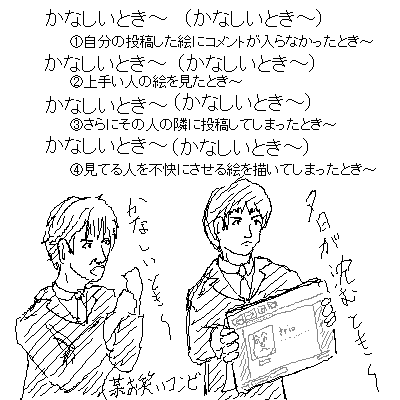 かなしいとき～ (かなしいとき～)
①自分の投稿した絵にコメントが入らなかったとき～
かなしいとき～ (かなしいとき～)
②上手い人の絵を見たとき～
かなしいとき～ (かなしいとき～)
③さらにその人の隣に投稿してしまったとき～
かなしいとき～ (かなしいとき～)
④見てる人を不快にさせる絵を描いてしまったとき～
かなしいとき～
夕日が沈むとき～
某お笑いコンビ